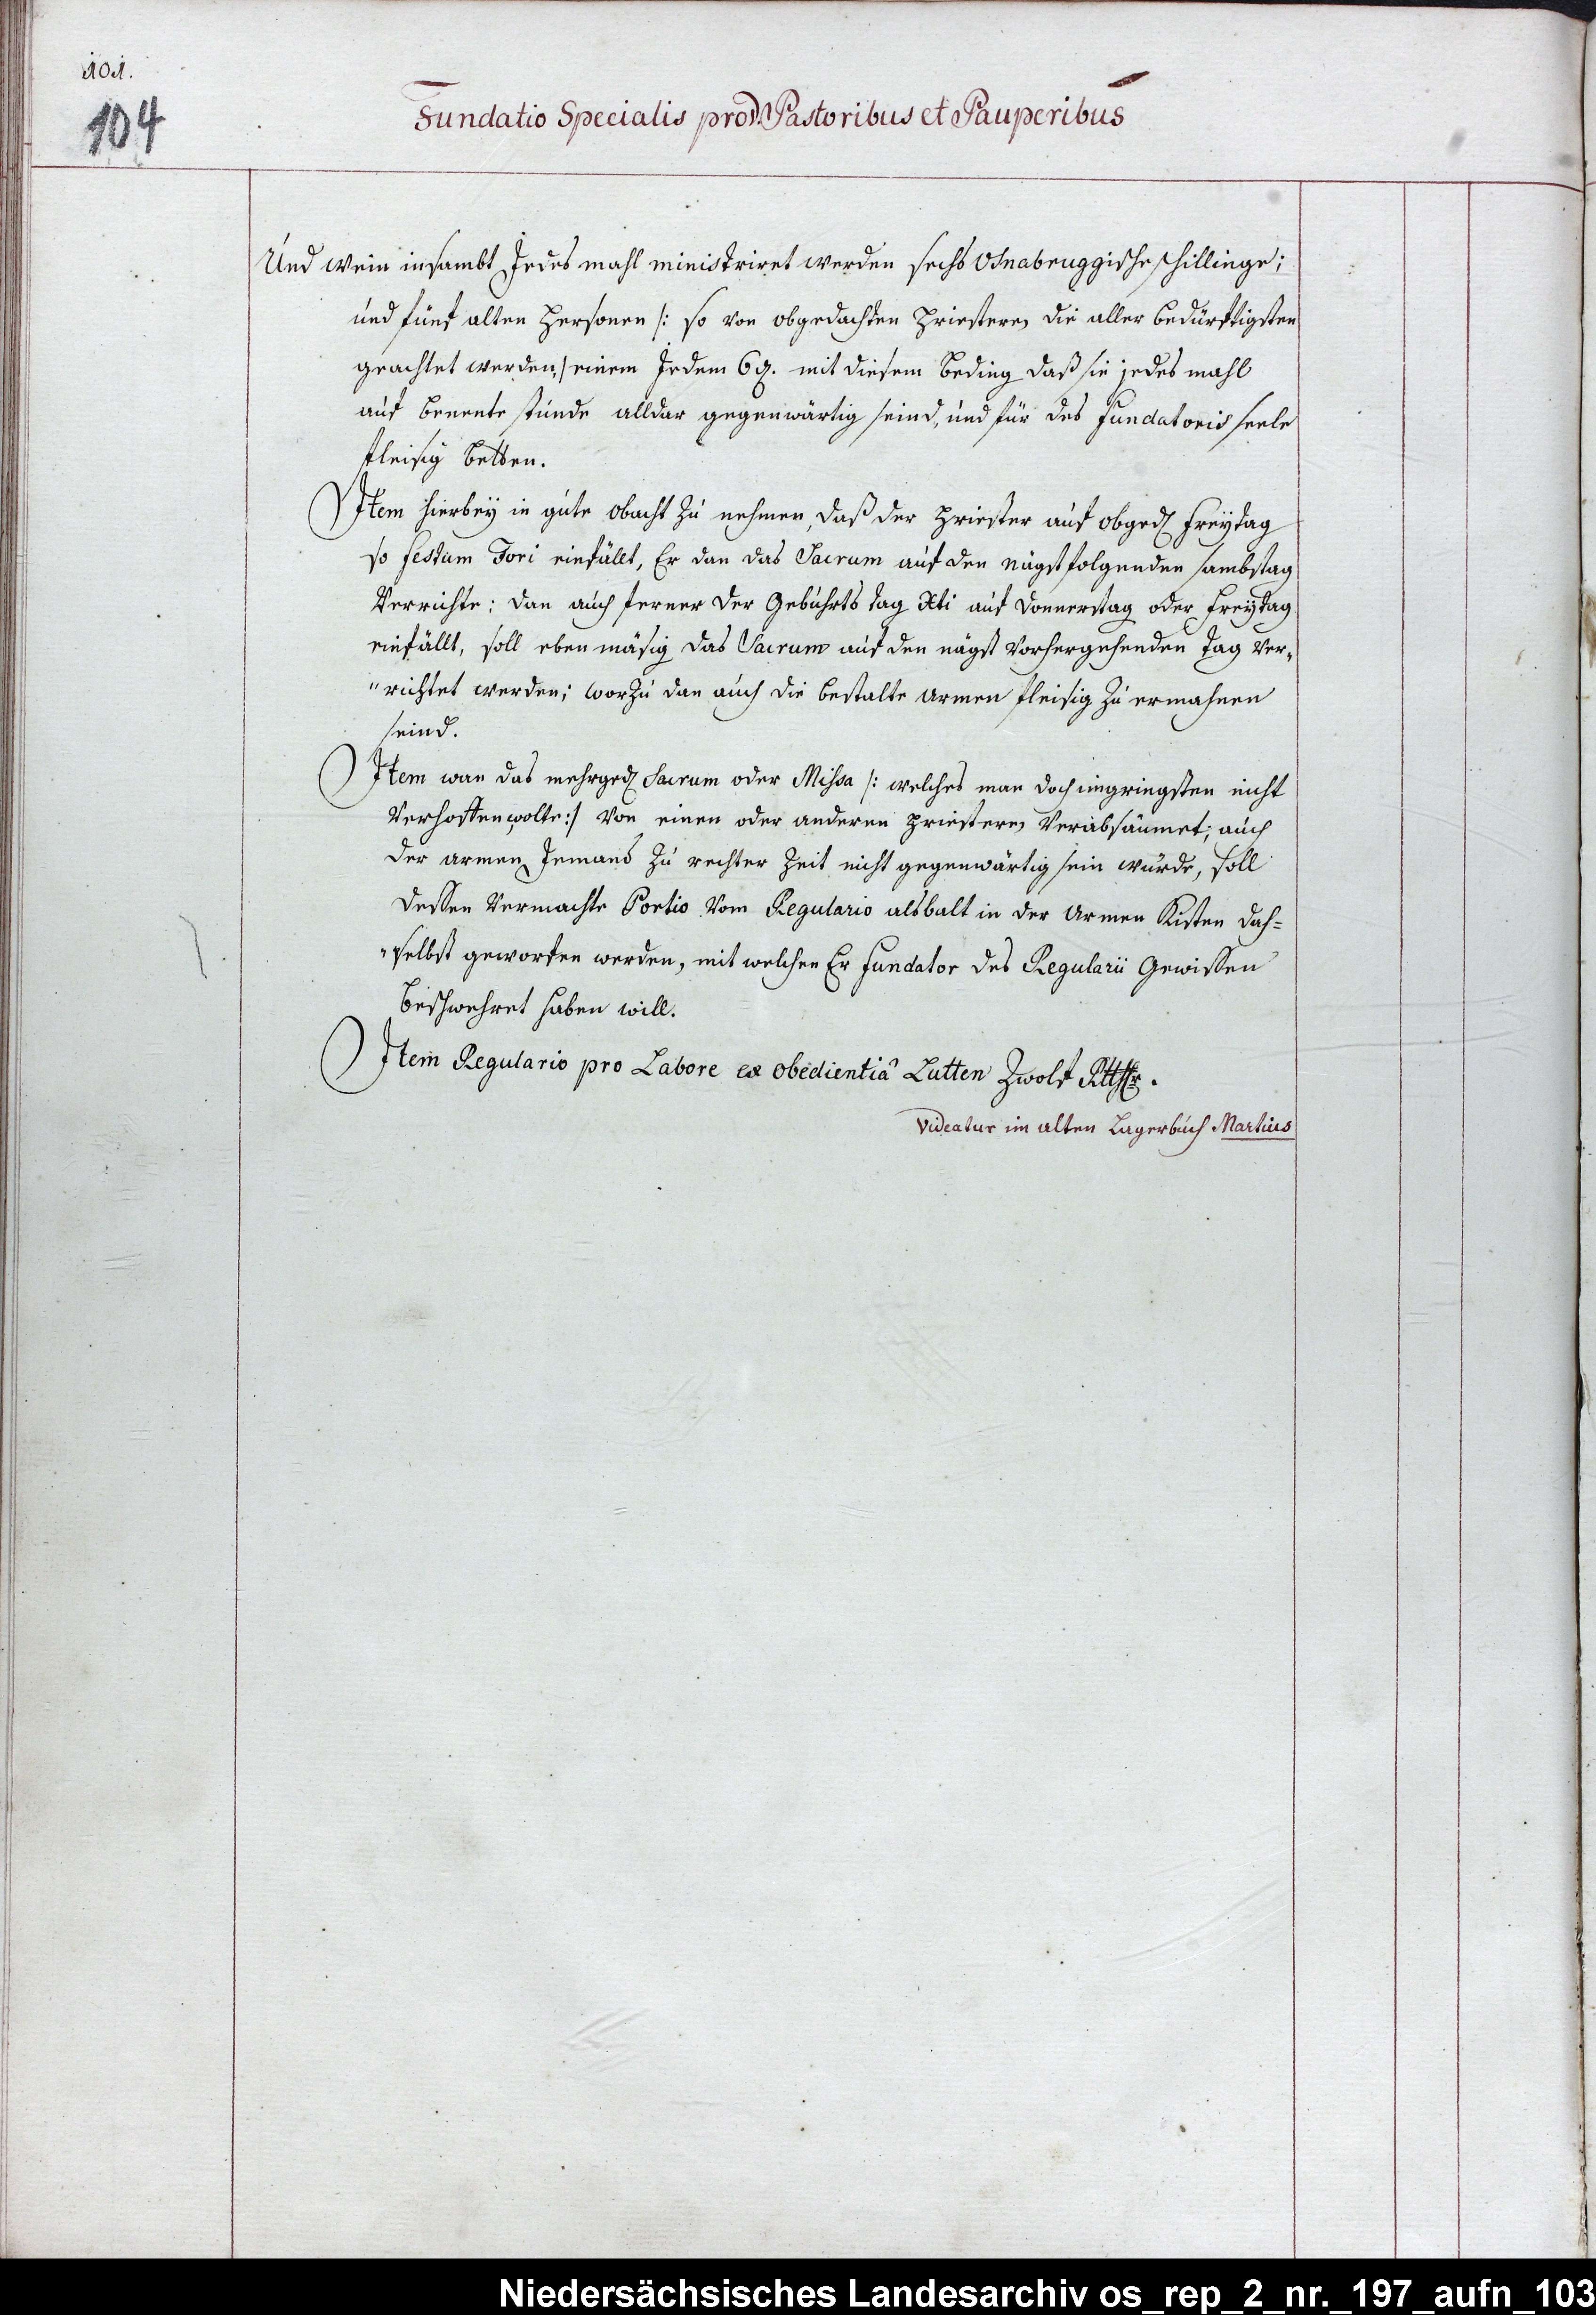 101.
104
Fundatio Specialis pro D. Pastoribus et Pauperibus
Und wein insambt Jedes mahl ministriret werden sechs Osnabruggische schillinge;
und fünf alten Personen /: so von obgedachten Priesteren die aller bedürftigsten
geachtet werden,/ einem Jedem 6 ₰. mit diesem beding daß sie jedes mahl
auf benente stunde alldar gegenwärtig seind, und für des Fundatoris seele
fleisig betten.
Item hierbey in gute obacht zu nehmen, daß der Priester auf obged. Freytag
so festum Fori einfällt, Er dan das Sacrum auf den nägstfolgenden sambstag
Verrichte: dan auch ferner der Gebuhrts tag Xti auf Donnerstag oder Freytag
einfällt, soll eben mäsig das Sacrum auf den nägst vorhergehenden tag ver„
"richtet werden; worzu dan auch die bestalte armen fleisig zu ermahnen
seind.
Item wan das mehrged. Sacrum oder Missa /: welches man doch imgringsten nicht
Verhoffen wolte :/ von einen oder anderen Priesteren Verabsäumet, auch
der armen Jemand zu rechter Zeit nicht gegenwärtig sein würde, soll
dessen Vermachte Portio vom Regulario alsbalt in der Armen Kisten dah=
"selbst geworfen werden, mit welchen Er Fundator des Regularii Gewissen
beschwehret haben will.
Item Regulario pro Labore ex obedientiâ Lutten Zwolf
Videatur im alten Lagerbuch Martius
Niedersächsisches Landesarchiv os_rep_2_nr._197_aufn_103